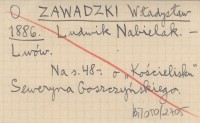 O ZAWADZKI Władysław
1886. Ludwik Nabielak. –
Lwów.
Na s. 48 – o „Kościelisku"
Seweryna Goszczyńskiego.